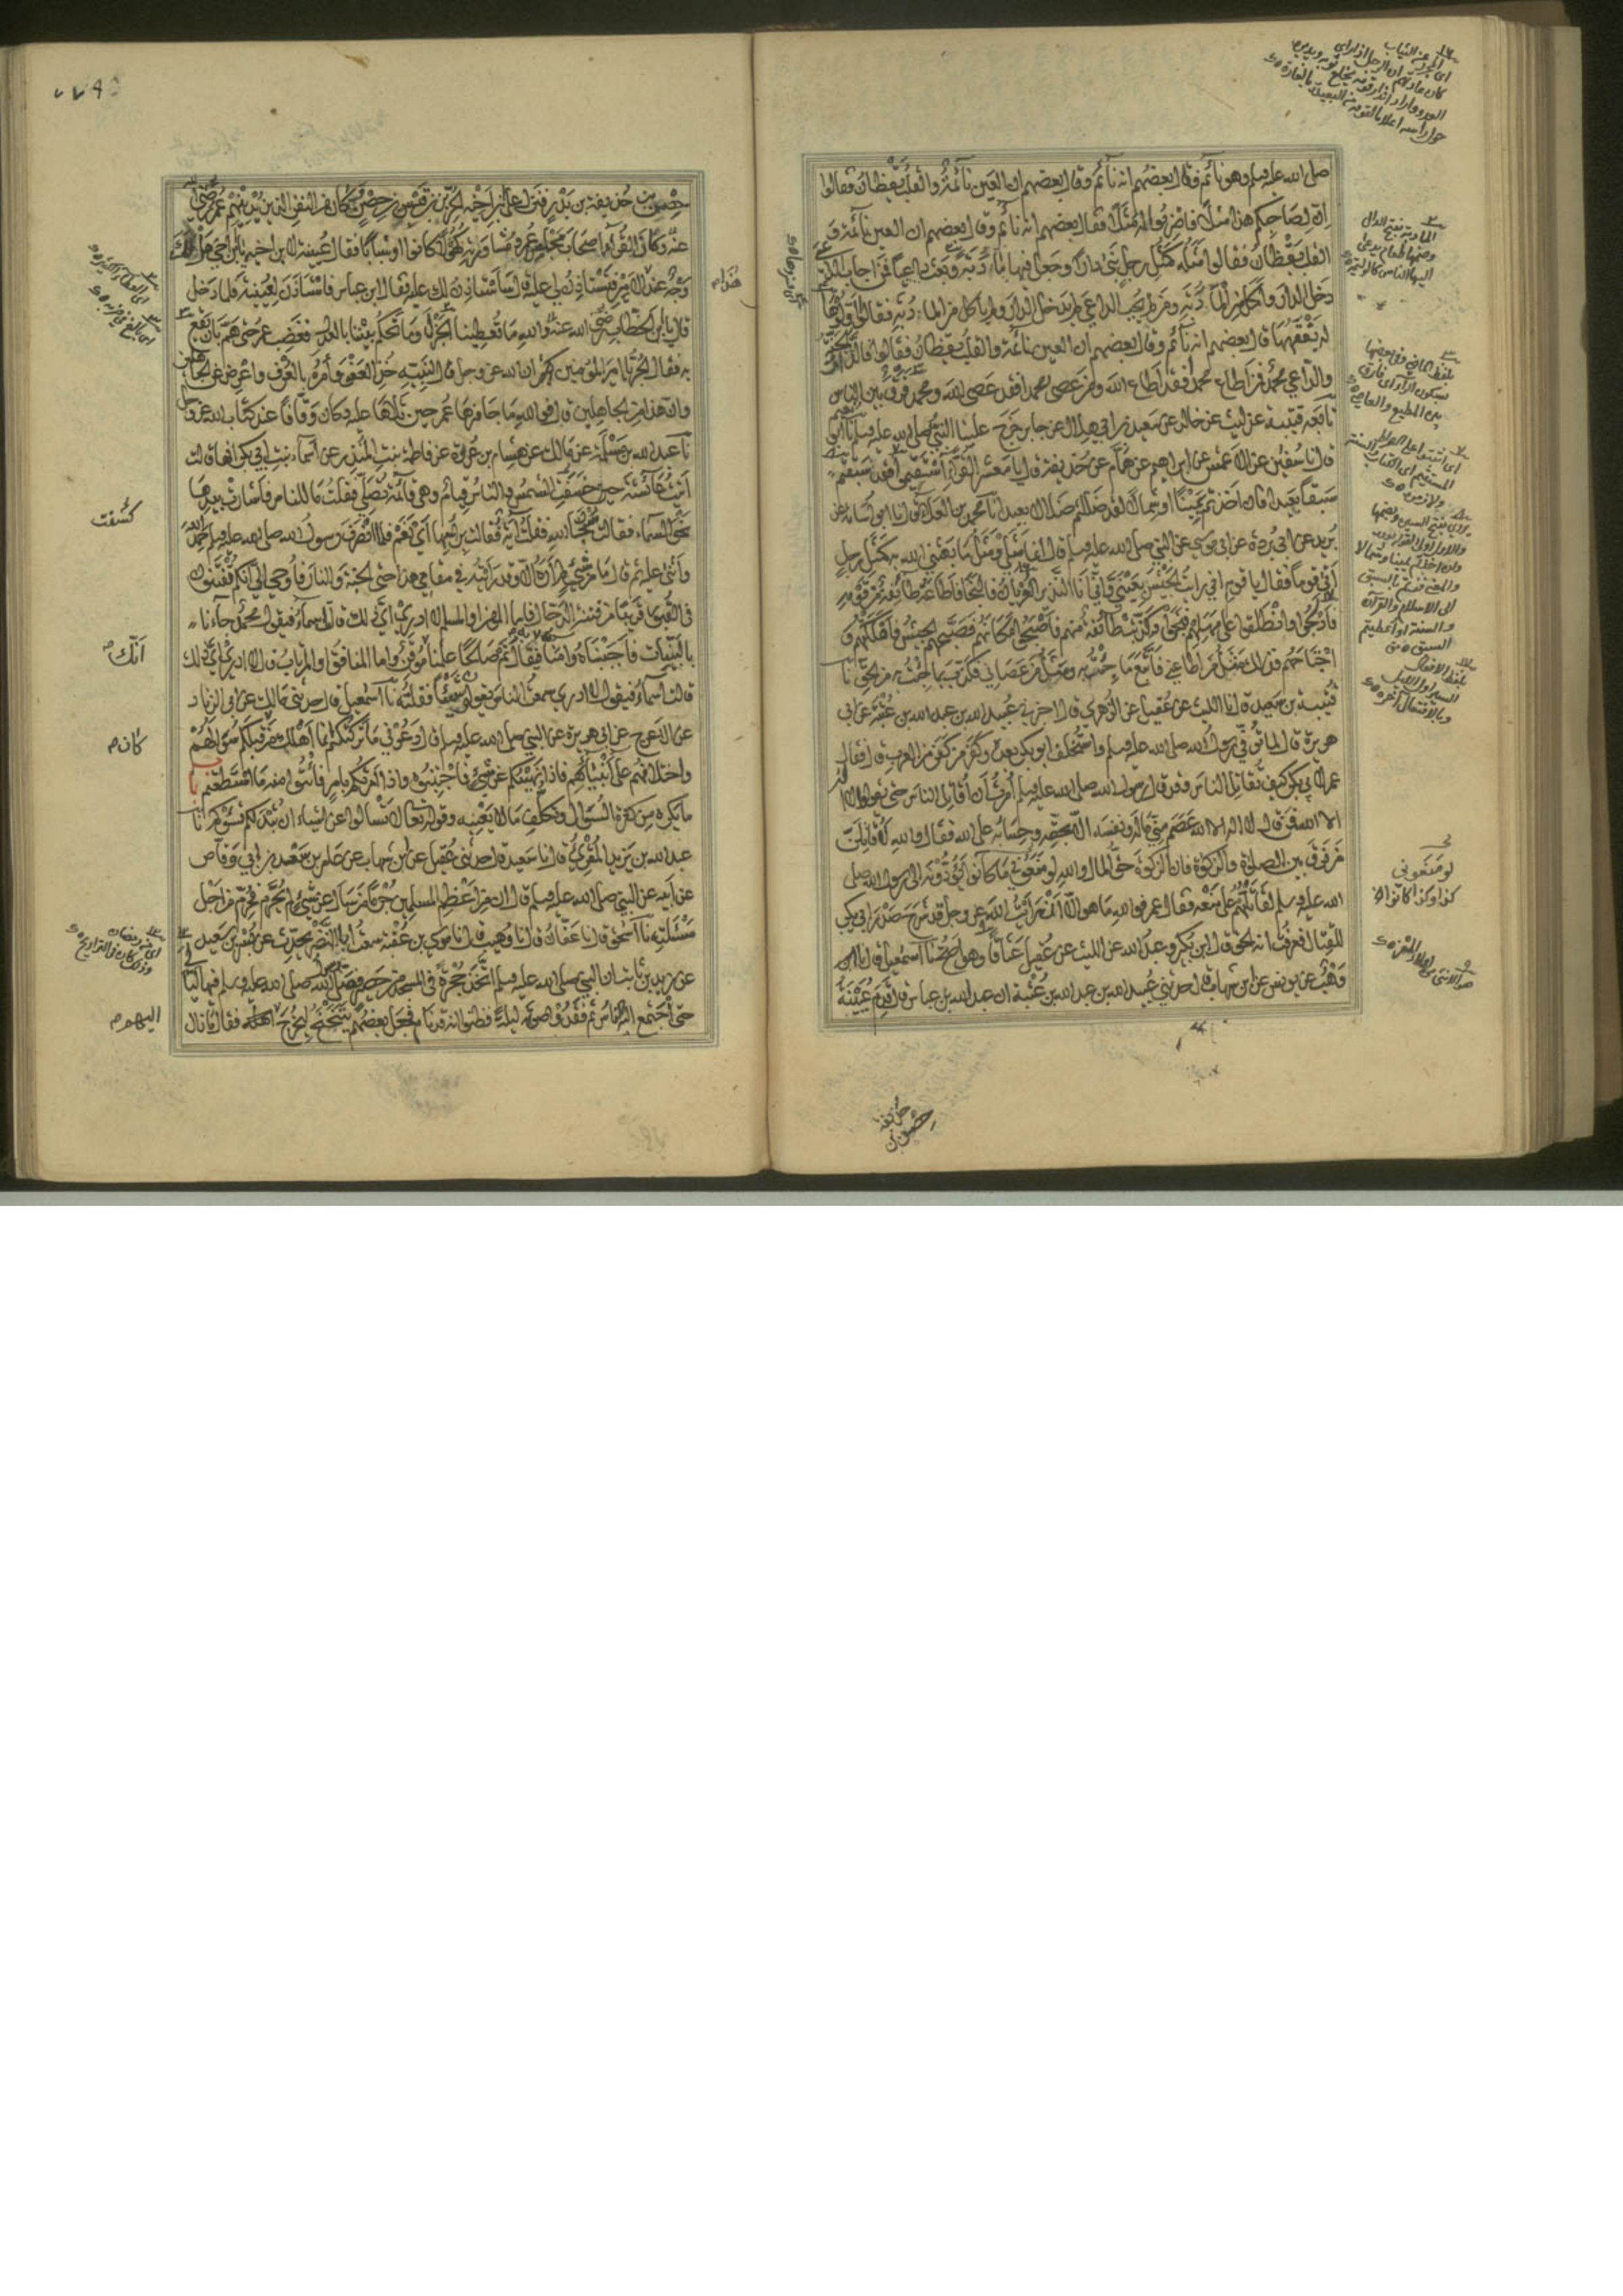 صلى الله عليه وسلم وهو نائم فقال بعضهم انه نائم وقال بعضهم ان العين نائمة والقلب يقظان فقالوا
ان لصاحبكم هذا مثلا فاضربوا له مثلا فقال بعضهم انه نائم وقال بعضهم ان العين نائمة و
القلب يقظان فقالوا مثله كمثل رجل بنى دارا وجعل فيها مأدبة وبعث داعيا فمن اجاب الداعي
دخل الدار واكل من المأدبة ومن لم يجب الداعي لم يدخل الدار ولم ياكل من المأدبة فقالوا اولوها
له يفقهها قال بعضهم انه نائم وقال بعضهم ان العين نائمة والقلب يقظان فقالوا فالدار الجنة
والداعي محمد فمن اطاع محمدا فقد اطاع الله ومن عصى محمدا فقد عصى الله ومحمد فرق بين الناس
تابعه قتيبة عن ليث عن خالد عن سعيد بن ابي هلال عن جابر خرج علينا النبي صلى الله عليه وسلم نا ابو نعيم
قال نا سفين عن الاعمش عن ابراهيم عن همام عن حذيفة قال يا معشر القراء استقيموا فقد سبقتم
سبقا بعيدا فان اخذتم يمينا او شمالا لقد ضللتم ضلالا بعيدا نا محمد بن العلاء قال نا ابو اسامة عن
بريد عن ابي بردة عن ابي موسى عن النبي صلى الله عليه وسلم قال انما مثلي ومثل ما بعثني الله به كمثل رجل
اتى قوما فقال يا قوم اني رايت الجيش بعيني واني انا النذير العريان فالنجا فاطاعه طائفة من قومه
فادلجوا وانطلقوا على مهلهم فنجوا وكذبت طائفة منهم فاصبحوا مكانهم فصبحهم الجيش فاهلكهم و
اجتاحهم فذلك مثل من اطاعني فاتبع ما جئت به ومثل من عصاني وكذب بما جئت به من الحق نا
قتيبة بن سعيد قال نا الليث عن عقيل عن الزهري قال اخبرني عبيد الله بن عبد الله بن عتبة عن ابي
هريرة قال لما توفي رسول الله صلى الله عليه وسلم واستخلف ابو بكر بعده وكفر من كفر من العرب قال فقال
عمر لابي بكر كيف تقاتل الناس وقد قال رسول الله صلى الله عليه وسلم امرت ان اقاتل الناس حتى يقولوا لا اله
الا الله فمن قال لا اله الا الله عصم مني ماله ونفسه الا بحقه وحسابه على الله فقال والله لاقاتلن
من فرق بين الصلوة والزكوة فان الزكوة حق المال والله لو منعوني ما كانوا يؤدونه الى رسول الله صلى
الله عليه وسلم لقاتلتهم على منعه فقال عمر فوالله ما هو الا ان رايت الله عز وجل قد شرح صدر ابي بكر
للقتال فعرفت انه الحق قال ابن بكير وعبد الله عن الليث عن عقيل عناقا وهو اصح نا اسمعيل قال نا ابن
وهب عن يونس عن ابن شهاب قال حدثني عبيد الله بن عبد الله بن عتبة ان عبد الله بن عباس قال قدم عيينة
لو منعوني
كذا وكذا كانوا
حصن بن حذيفة بن بدر فنزل على ابن اخيه الحر بن قيس بن حصن وكان من النفر الذين يدنيهم عمر رضي الله
عنه وكان القراء اصحاب مجلس عمر ومشاورته كهولا كانوا او شبابا فقال عيينة لابن اخيه يا ابن اخي هل لك
وجه عند الامير فتستاذن لي عليه قال ساستاذن لك عليه فقال ابن عباس فاستاذن لعيينة فلما دخل
قال يا ابن الخطاب رضي الله عنه والله ما تعطينا الجزل وما تحكم بيننا بالعدل فغضب عمر حتى هم بان يقع
به فقال الحر يا امير المؤمنين ان الله عز وجل قال لنبيه خذ العفو وأمر بالعرف واعرض عن الجاهلين
وان هذا من الجاهلين قال فوالله ما جاوزها عمر حين تلاها عليه وكان وقافا عند كتاب الله عز وجل
نا عبد الله بن مسلمة عن مالك عن هشام بن عروة عن فاطمة بنت المنذر عن اسماء بنت ابي بكر انها قالت
اتيت عائشة حين خسفت الشمس والناس قيام وهي قائمة تصلي فقلت ما للناس فاشارت بيدها
نحو السماء فقالت سبحان الله فقلت آية فقالت براسها اي نعم فلما انصرف رسول الله صلى الله عليه وسلم حمد الله
واثنى عليه ثم قال ما من شيء لم اره الا وقد رايته في مقامي هذا حتى الجنة والنار فاوحي الي انكم تفتنون
في القبور قريبا من فتنة الدجال فاما المؤمن او المسلم لا ادري اي ذلك قالت اسماء فيقول محمد جاءنا
بالبينات فاجبناه وامنا فيقال نم صالحا علمنا موقن واما المنافق او المرتاب لا ادري اي ذلك
قالت اسماء فيقول لا ادري سمعت الناس يقولون شيئا فقلته نا اسمعيل قال حدثني مالك عن ابي الزناد
عن الاعرج عن ابي هريرة عن النبي صلى الله عليه وسلم قال دعوني ما تركتكم انما اهلك من قبلكم سؤالهم
واختلافهم على انبيائهم فاذا نهيتكم عن شيء فاجتنبوه واذا امرتكم بامر فأتوا منه ما استطعتم باب
ما يكره من كثرة السؤال وتكلف ما لا يعنيه وقوله تعالى لا تسألوا عن اشياء ان تبد لكم تسؤكم نا
عبد الله بن يزيد المقرئ قال نا سعيد قال حدثني عقيل عن ابن شهاب عن عامر بن سعد بن ابي وقاص
عن ابيه عن النبي صلى الله عليه وسلم قال ان من اعظم المسلمين جرما من سال عن شيء لم يحرم فحرم من اجل
مسئلته نا اسحق قال نا عفان قال نا وهيب قال نا موسى بن عقبة سمعت ابا النضر يحدث عن بسر بن سعيد
عن زيد بن ثابت ان النبي صلى الله عليه وسلم اتخذ حجرة في المسجد من حصير فصلى رسول الله صلى الله عليه وسلم فيها ليالي
حتى اجتمع اليه ناس ثم فقدوا صوته ليلة فظنوا انه قد نام فجعل بعضهم يتنحنح ليخرج فقال ما زال
كسفت
كان م
اليهم م